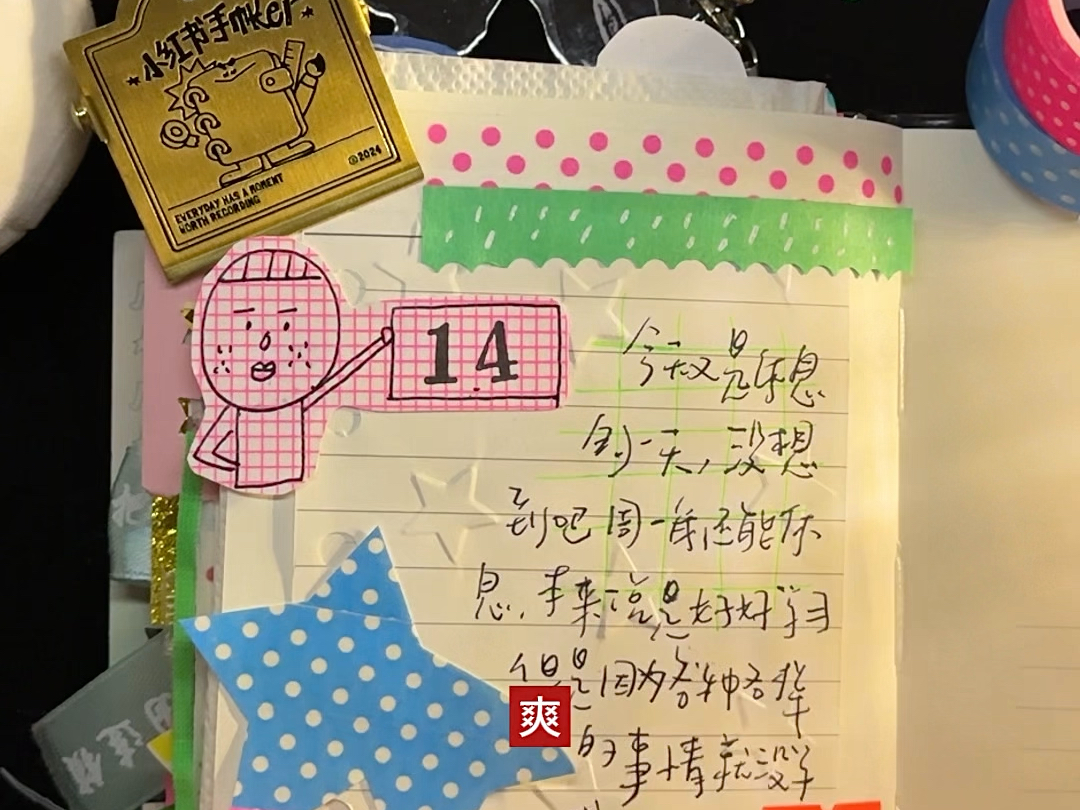 小红书手maker
©2024
EVERYDAY HAS A MOMENT
WORTH RECORDING
14
今天又是休息
的一天，没想
到吧周一年还能休
息，本来说是好好学习
但是因为各种各样
的事情就没学
爽